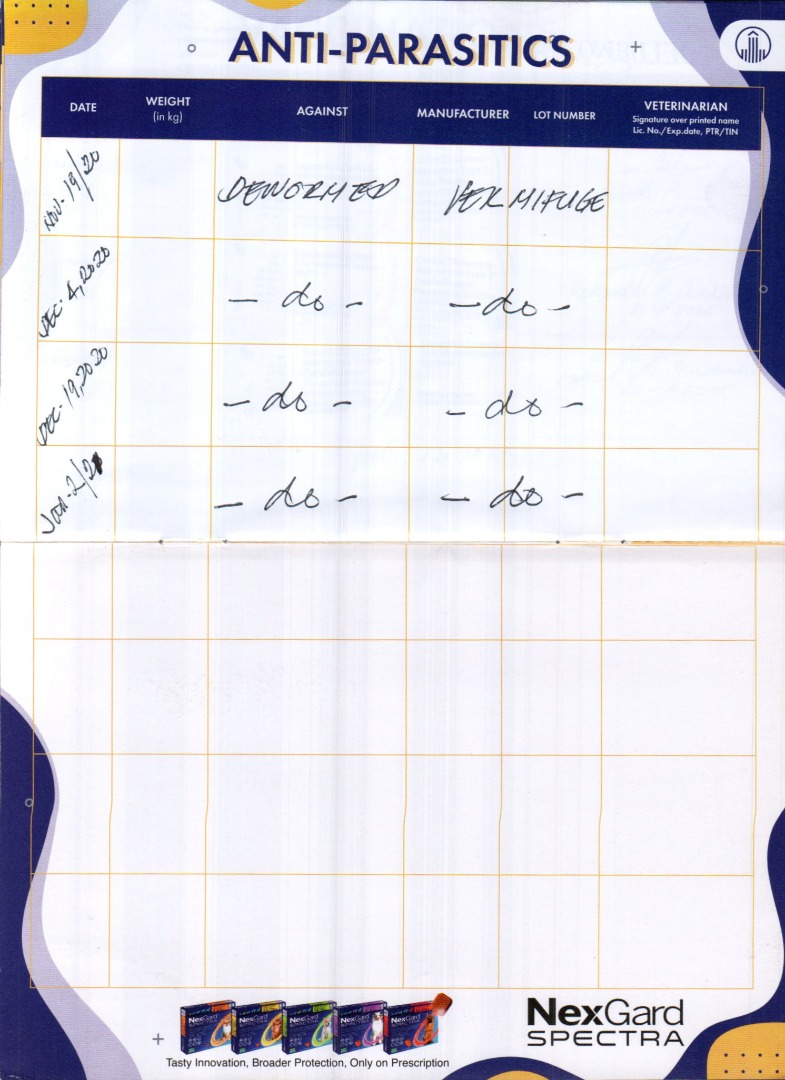 ANTI-PARASITICS
DATE WEIGHT (in kg) AGAINST MANUFACTURER LOT NUMBER VETERINARIAN Signature over printed name Lic. No./Exp.date, PTR/TIN
NOV-19/20 DEWORMED VERMIFUGE
DEC-4,2020 - do - - do -
DEC-19,2020 - do - - do -
JAN-2/21 - do - - do -
NexGard SPECTRA
Tasty Innovation, Broader Protection, Only on Prescription